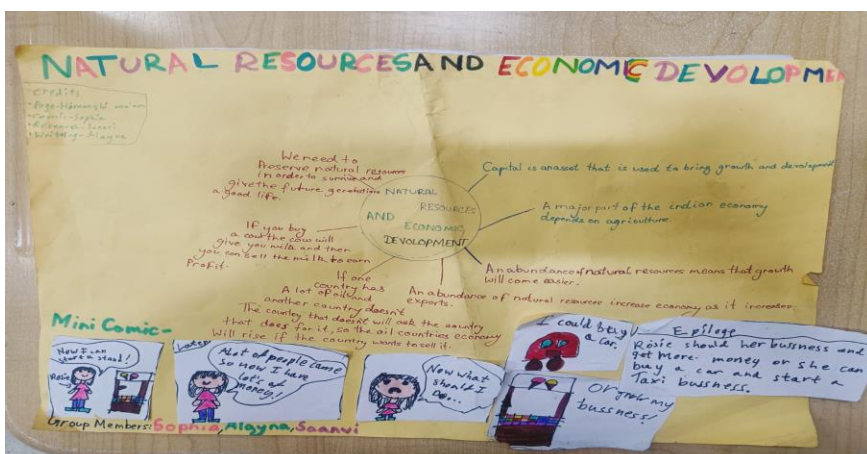 NATURAL RESOURCES AND ECONOMIC DEVOLOPME
Credits
We need to
Preserve natural resources
in order to survive and
give the future generations
a good life.
If you buy
a cow the cow will
give you milk and then
you can sell the milk to earn
Profit.
If one
country has
A lot of oil and
another country doesn't
The country that doesn't will ask the country
that does for it, so the oil countries economy
Will rise if the country wants to sell it.
NATURAL
RESOURCES
AND
ECONOMIC
DEVOLOPMENT
Capital is an asset that is used to bring growth and development
A major part of the indian economy
depends on agriculture.
An abundance of natural resources means that growth
will come easier.
An abundance of natural resources increase economy as it increases
exports.
Mini Comic-
Now I can
start a stand!
Rosie
Later
Alot of people came
so now I have
lot's of
money!
Now what
should I
do...
I could buy
a car.
Or grow my
bussness!
Epiloge
Rosie should her bussness and
get more money or she can
buy a car and start a
Taxi bussness.
Group Members: Sophia, Alayna, Saanvi